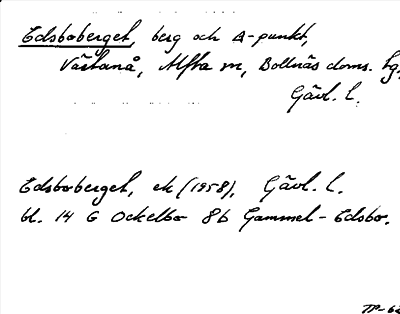 Edsboberget, berg och Δ-punkt,
Västanå, Alfta sn, Bollnäs doms. hg,
Gävl. l.
Edsboberget, ek (1958), Gävl. l.
bl. 14 G Ockelbo 8b Gammel-Edsbo.